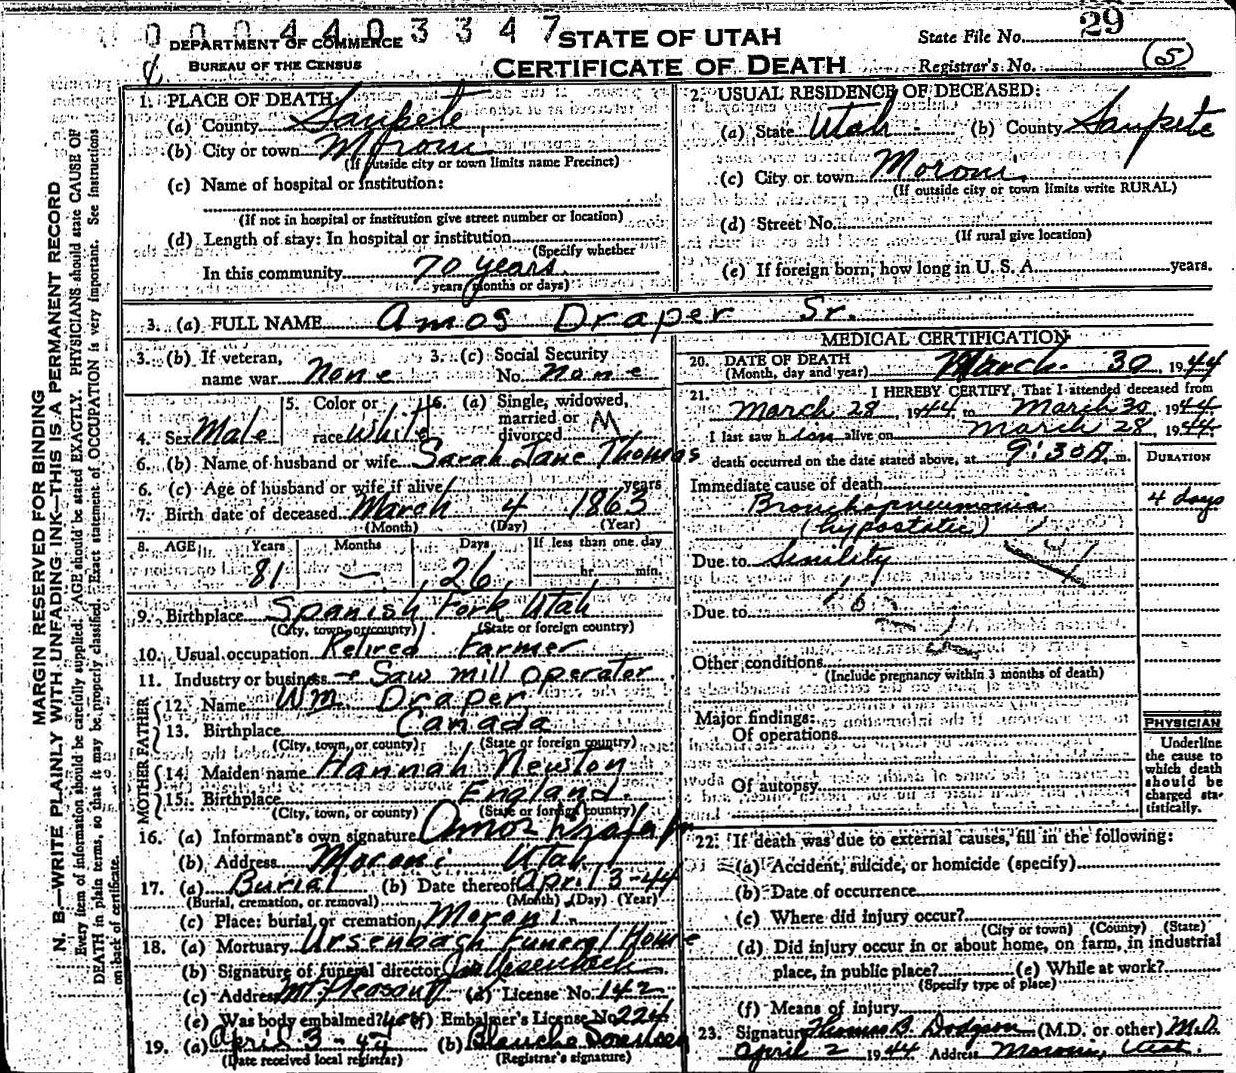 0 0 0 4 4 0 3 3 4 7
DEPARTMENT OF COMMERCE
BUREAU OF THE CENSUS
STATE OF UTAH
CERTIFICATE OF DEATH
State File No. 29
Registrar's No. (5)
MARGIN RESERVED FOR BINDING
N. B.—WRITE PLAINLY WITH UNFADING INK—THIS IS A PERMANENT RECORD
Every item of information should be carefully supplied. AGE should be stated EXACTLY. PHYSICIANS should state CAUSE OF
DEATH in plain terms, so that it may be properly classified. Exact statement of OCCUPATION is very important. See instructions
on back of certificate.
1. PLACE OF DEATH:
(a) County Sanpete
(b) City or town Moroni
(If outside city or town limits name Precinct)
(c) Name of hospital or institution:
(If not in hospital or institution give street number or location)
(d) Length of stay: In hospital or institution
(Specify whether
In this community 70 years
years, months or days)
2. USUAL RESIDENCE OF DECEASED:
(a) State Utah (b) County Sanpete
(c) City or town Moroni
(If outside city or town limits write RURAL)
(d) Street No.
(If rural give location)
(e) If foreign born, how long in U. S. A. years.
3. (a) FULL NAME Amos Draper Sr.
3. (b) If veteran, name war None
3. (c) Social Security No. None
4. Sex Male
5. Color or race White
6. (a) Single, widowed, married or divorced M
6. (b) Name of husband or wife Sarah Jane Thomas
6. (c) Age of husband or wife if alive years
7. Birth date of deceased March 4 1863
(Month) (Day) (Year)
8. AGE Years Months Days If less than one day
81 — 26 hr. min.
9. Birthplace Spanish Fork Utah
(City, town, or county) (State or foreign country)
10. Usual occupation Retired Farmer
11. Industry or business Saw mill operator
FATHER
12. Name Wm Draper
13. Birthplace Canada
(City, town, or county) (State or foreign country)
MOTHER
14. Maiden name Hannah Newton
15. Birthplace England
(City, town, or county) (State or foreign country)
16. (a) Informant's own signature Amos Draper
(b) Address Moroni Utah
17. (a) Burial (b) Date thereof April 3-44
(Burial, cremation, or removal) (Month) (Day) (Year)
(c) Place: burial or cremation Moroni
18. (a) Mortuary Ursenbach Funeral Home
(b) Signature of funeral director Ursenbach
(c) Address Mt Pleasant (d) License No. 142
(e) Was body embalmed? Yes (f) Embalmer's License No. 224
19. (a) April 3-44 (b) Blanche
(Date received local registrar) (Registrar's signature)
MEDICAL CERTIFICATION
20. DATE OF DEATH
(Month, day and year) March 30, 1944
21. I HEREBY CERTIFY, That I attended deceased from
March 28 1944 to March 30 1944
I last saw him alive on March 28 1944
death occurred on the date stated above, at 9:30 A. m.
DURATION
Immediate cause of death
Bronchopneumonia 4 days
(hypostatic)
Due to Sinility
Due to
Other conditions
(Include pregnancy within 3 months of death)
Major findings:
Of operations
Of autopsy
PHYSICIAN
Underline
the cause to
which death
should be
charged sta-
tistically.
22. If death was due to external causes, fill in the following:
(a) Accident, suicide, or homicide (specify)
(b) Date of occurrence
(c) Where did injury occur?
(City or town) (County) (State)
(d) Did injury occur in or about home, on farm, in industrial
place, in public place? (e) While at work?
(Specify type of place)
(f) Means of injury
23. Signature Thomas B. Dodgson (M.D. or other) M.D.
April 2 1944 Address Moroni, Utah.